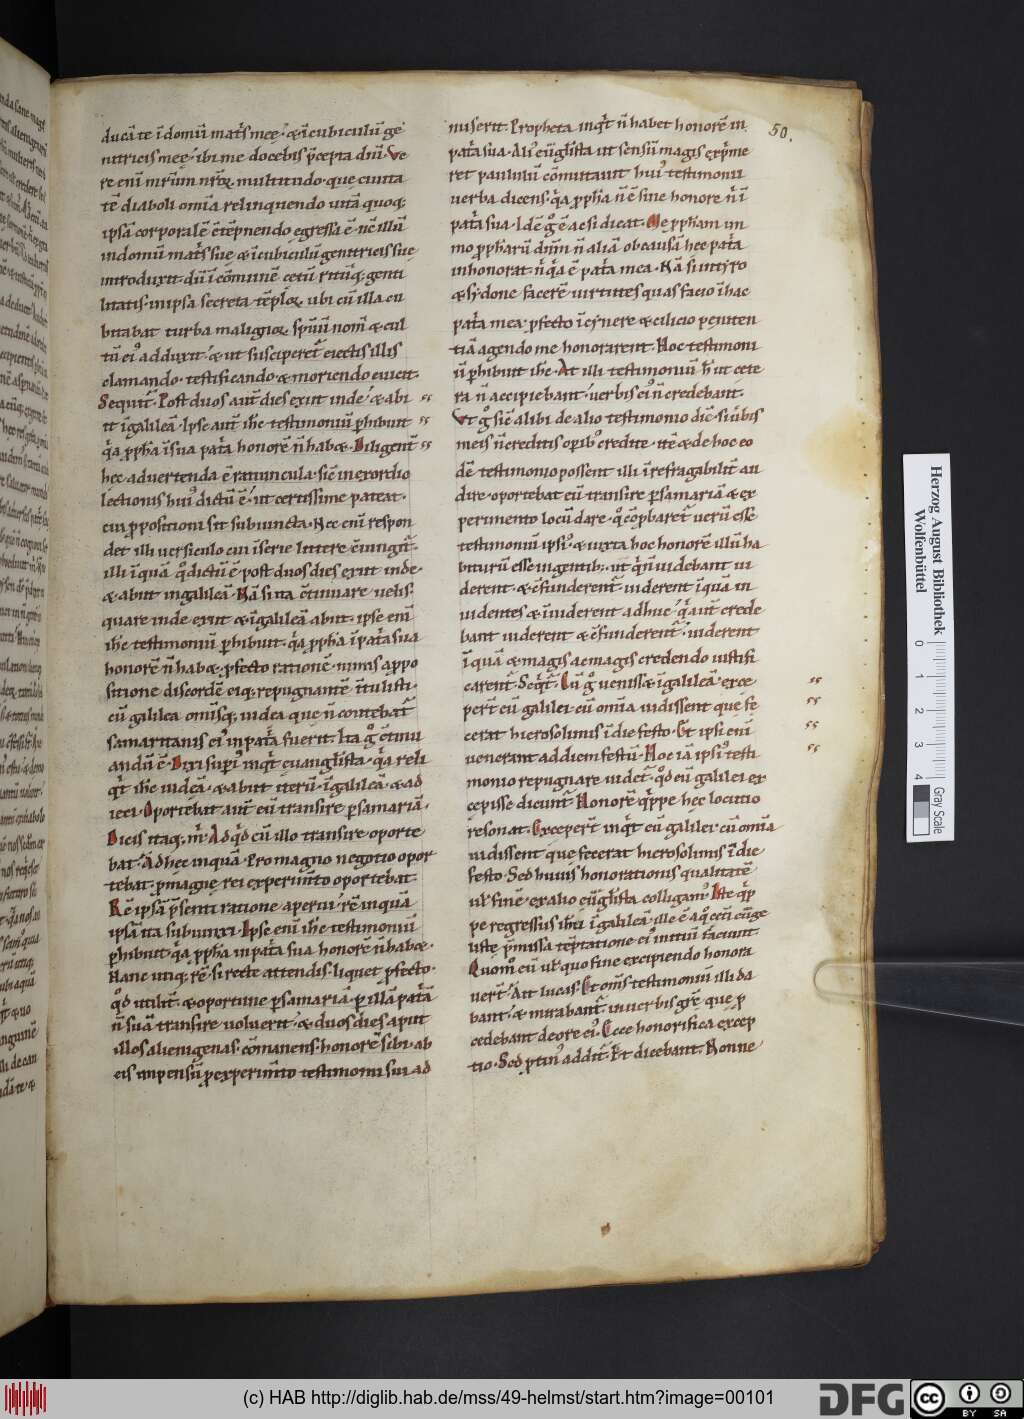 ducā te ī domū mat͛s meę. & ī cubiculū ge
nitricis meę. ibi me docebis p̄cepta dn̄i. Ve
re eni mr̄im nr̄oꝝ multitudo. que ciuita
tē diaboli omīa relinquendo uitā quoq;
ipsā corporalē
in domū mat͛s suę & ī cubiculū genitricis suę
introduxit. dū ī cōmunē cetū ritūq; genti
litatis. in ipsa secreta tēploꝝ. ubi cū illa cu
bitabat turba malignoꝝ. sp̄uū nom̄ & cul
tū eiꝰ adduxit. & ut susciperet͛ eiectis illis
clamando. testificando & moriendo euicit.
Sequit͛. Post duos aut̄ dies exiit inde. & abi
it ī galileā. Ipse aut̄ ih̄c testimoniū phibuit
q͛a pph̄a ī sua pat͛a honorē n̄ hab&. Diligent͛
hec aduertenda ē ratiuncula. sic̄ in exordio
lectionis huiꝰ dictū ē. ut certissime pateat.
cui ppositioni sit subiuncta. Nec eni respon
det illi uersiculo cui ī serie littere ē iungit͛.
illi inquā qd̄ dictū ē post duos dies exiit inde.
& abiit in galileā. Nā si ita ētinuare uelis.
quare inde exiit & ī galileā abiit. ipse eni
ih̄c testimoniū phibuit. q͛a pph̄a ī pat͛a sua
honorē n̄ hab&. pfecto rationē nimis appo
sitione discordē eiq; repugnantē
cū galilea omīsq; iudea que n̄ coutebat͛
samaritanis eiꝰ in pat͛a fuerit. Ita g͛ ētinu
andū ē. Dixi supi inqt̄ euanglista. q͛a reli
qt̄ ih̄c iudeā. & abiit iterū ī galileā. & ad
ieci. Oportebat aut̄ eū transire p samariā.
Dicis itaq; m̄. Ad qd̄ cū illo transire oporte
bat. Ad hec inquā. Pro magno negotio opor
tebat. p magnę rei experim̄to oportebat.
Rē ipsā p̄senti ratione aperui. rē inquā
ipsā ita subiunxi. Ipse eni ih̄c testimoniū
phibuit. q͛a pph̄a in pat͛a sua honorē n̄ hab&.
Hanc utiq; rē si recte attendis. liquet pfecto.
qd̄ utilit͛. & oportune p samariā. p illā pat͛ā
n̄ suā transire uoluerit. & duos dies apud
illos alienigenas cōmanens. honorē sibi. ab
eis impensū p experim̄to testimonii sui ad
50.
miserit. Propheta inqt̄ n̄ habet honorē in
pat͛a sua. Aliꝰ eūglista ut sensū magis exp̄me
ret paululū cōmutauit huiꝰ testimonii
uerba dicens. q͛a pph̄a n̄ ē sine honore n̄ ī
pat͛a sua. Idē g͛ ē ac si dicat. Me pph̄am im
mo pph̄arū dn̄m n̄ aliā ob causā hec pat͛a
inhonorat. n̄ q͛a ē pat͛a mea. Nā si in tyro
& sydone facerē uirtutes quas facio ī hac
pat͛a mea. pfecto ī cynere & cilicio peniten
tiā agendo me honorarent. Hoc testimoni
ū phibuit ih̄c. At illi testimoniū h̄ ut cete
ra n̄ accipiebant. uerbis eiꝰ n̄ credebant.
Vt g͛ sic̄ alibi de alio testimonio dic̄. si uerbis
meis n̄ creditis opibꝰ credite. ite & de hoc eo
dē testimonio possent illi ī refragabilit͛ au
dire. oportebat eū transire p samariā & ex
perimento locū dare. qd̄ cōpbaret͛ uerū esse
testimoniū ipsiꝰ. & iuxta hoc honorē illū ha
biturū esse in gentibꝫ. ut qui n̄ uidebant ui
derent. & ēfunderent͛. uiderent inquā in
uidentes & īuiderent adhuc. qi aut̄ crede
bant uiderent & ēfunderent͛. uiderent
inquā & magis ac magis credendo iustifi
carent͛. Seqt͛. Cū g͛ uenisset ī galileā. exce
pert̄ eū galilei cū omīa uidissent que fe
cerat hierosolimis ī die festo. Et ipsi eni
uenerant ad diem festū. Hoc iā ipsiꝰ testi
monio repugnare uidet͛. qd̄ eū galilei ex
cepisse dicunt͛. Honorē q̄ppe hec locutio
resonat. Excepert̄ inqt̄ eū galilei. cū omīa
uidissent que fecerat hierosolimis ī die
festo. Sed huius honorationis qualitatē
ul̄ finē ex alio eūglista colligamꝰ. Iste q̄p
pe regressus ih̄u ī galileā. ille ē
uiste p̄missa tēptatione eiꝰ initiū faciunt.
Quom̄ eū ul̄ quo fine excipiendo honora
uert̄. Ait lucas. Et om̄s testimoniū illi da
bant. & mirabant͛ in uerbis gr̄e que p
cedebant de ore eiꝰ. Ecce honorifica excep
tio. Sed ptinꝰ addit͛. Et dicebant. Nonne
Herzog August Bibliothek
Wolfenbüttel
0 1 2 3 4
Gray Scale
(c) HAB http://diglib.hab.de/mss/49-helmst/start.htm?image=00101
DFG
cc BY SA